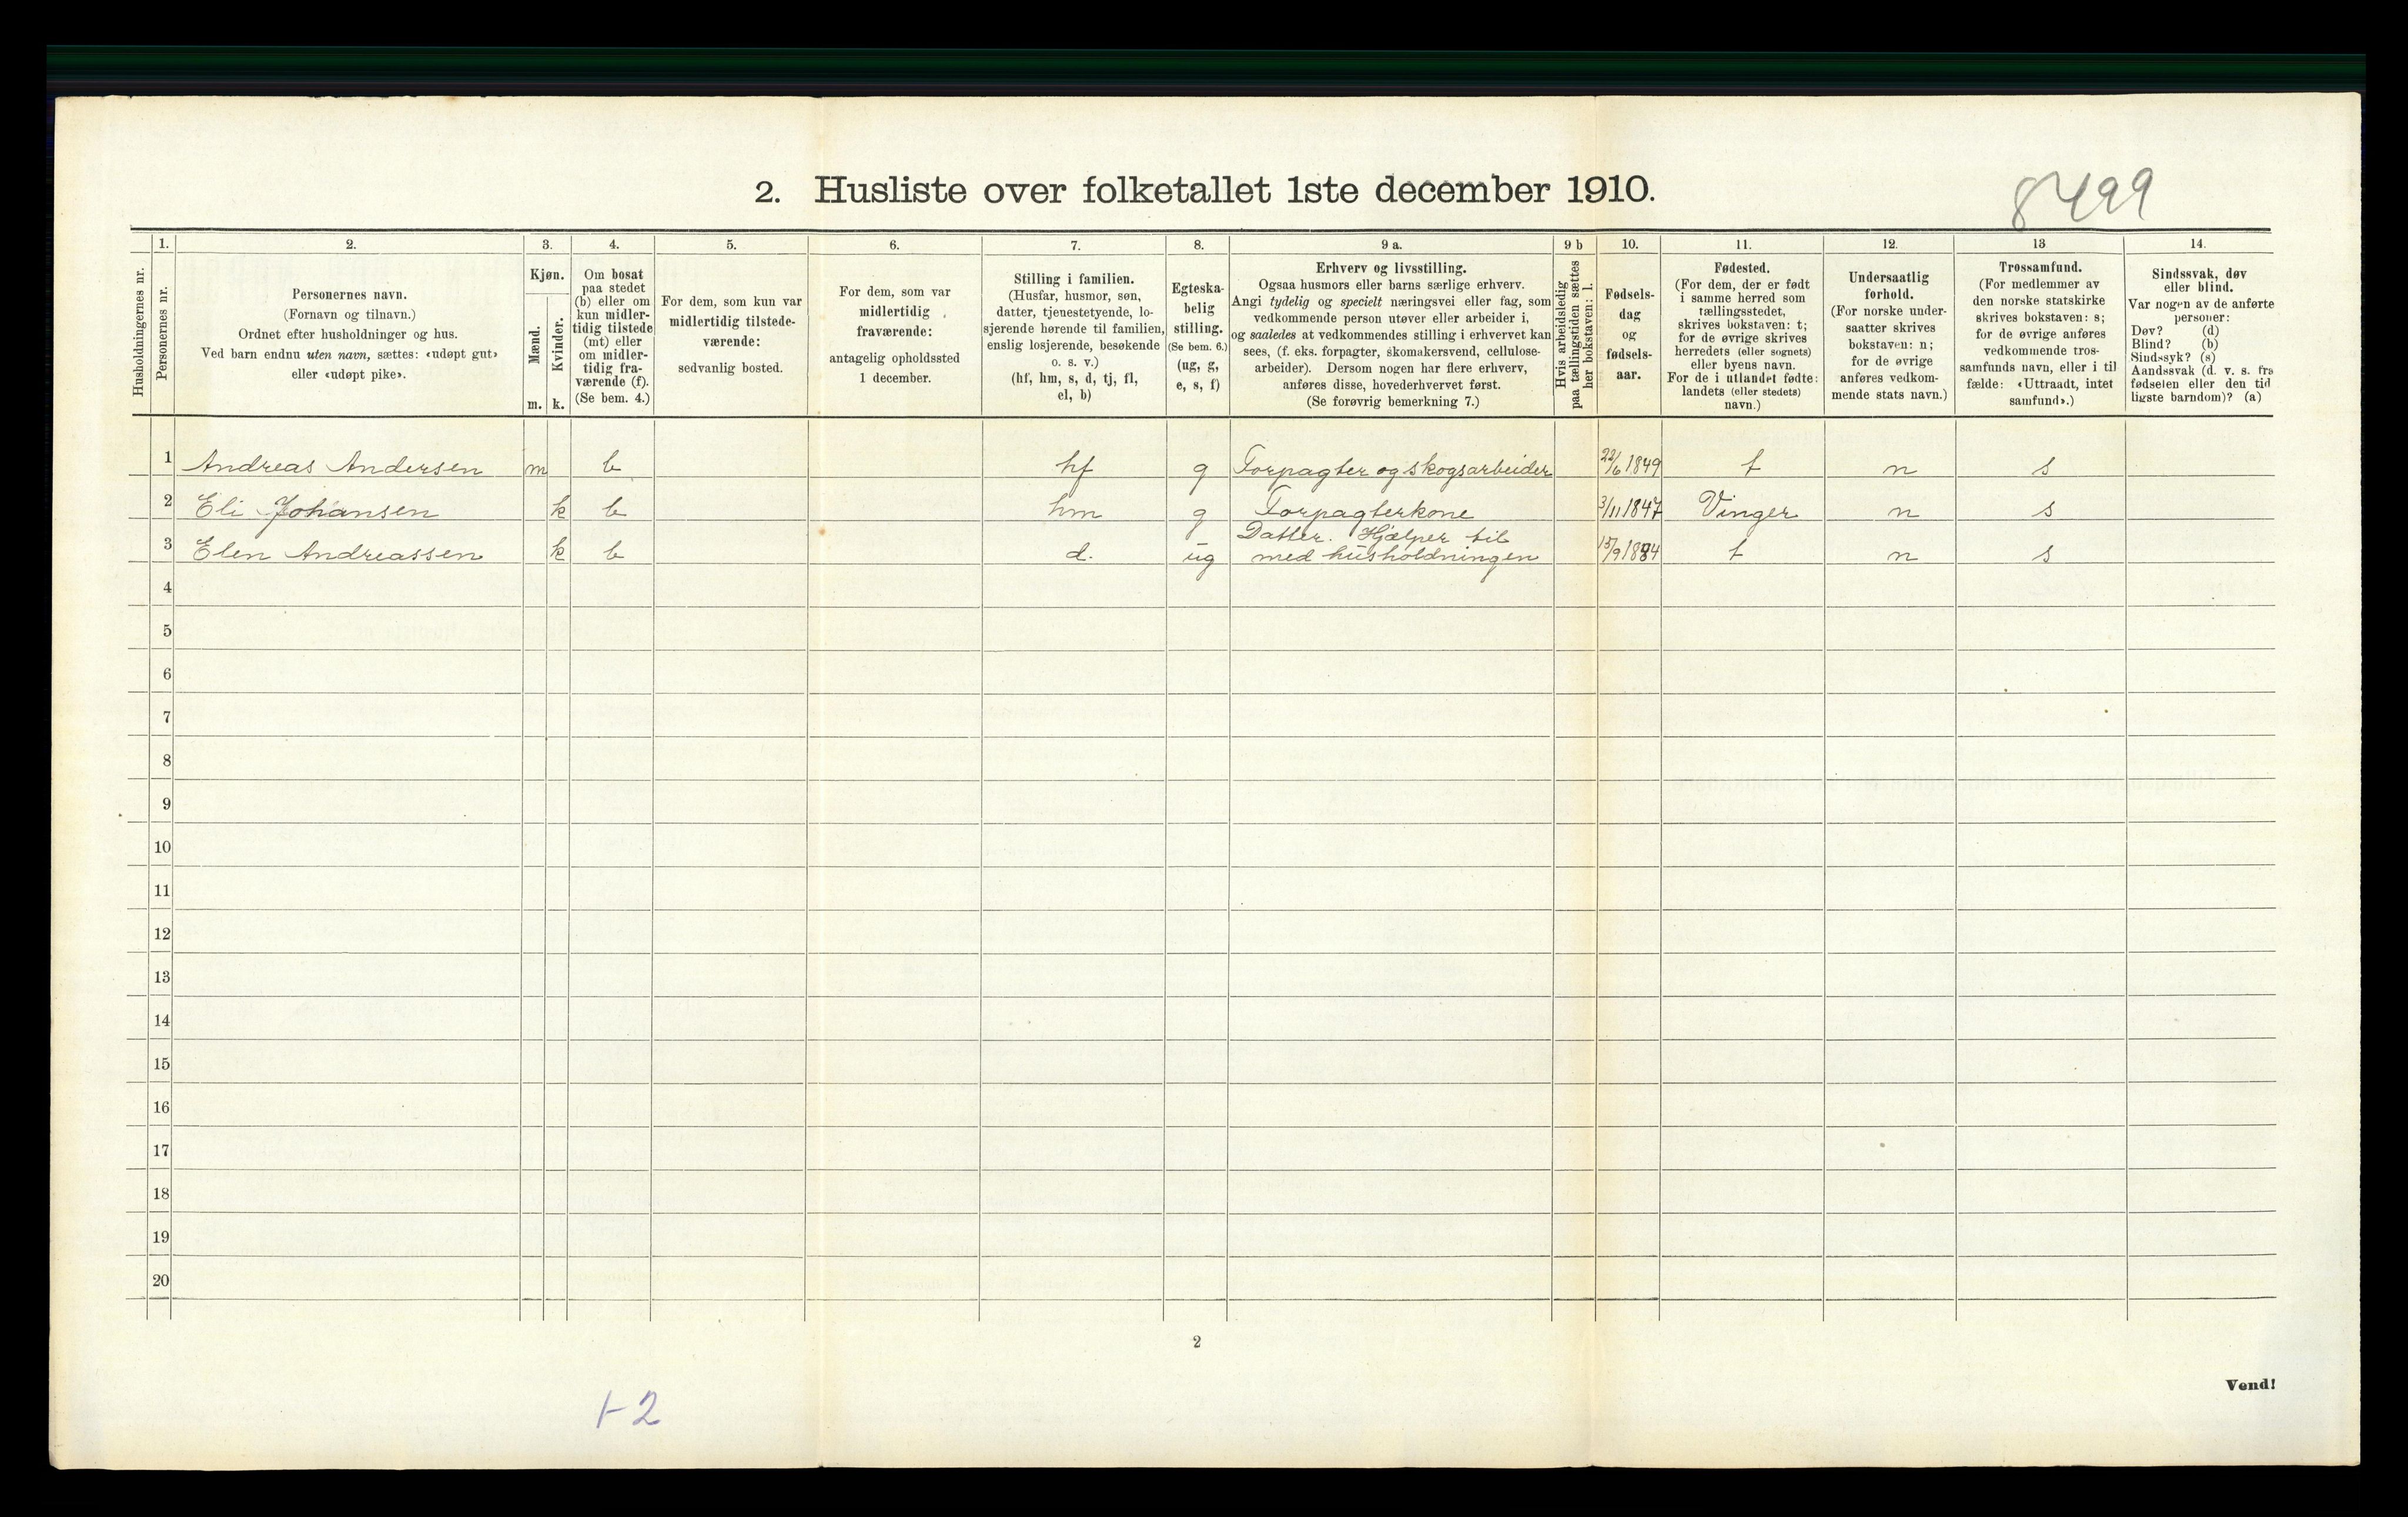 8499
2. Husliste over folketallet 1ste december 1910.
1. 2. 3. 4. 5. 6. 7. 8. 9 a. 9 b 10. 11. 12. 13 14.
Husholdningernes nr.
Personernes nr.
Personernes navn.
(Fornavn og tilnavn.)
Ordnet efter husholdninger og hus.
Ved barn endnu uten navn, sættes: «udøpt gut»
eller «udøpt pike».
Kjøn.
Mænd.
Kvinder.
m. k.
Om bosat
paa stedet
(b) eller om
kun midler-
tidig tilstede
(mt) eller
om midler-
tidig fra-
værende (f).
(Se bem. 4.)
For dem, som kun var
midlertidig tilstede-
værende:
sedvanlig bosted.
For dem, som var
midlertidig
fraværende:
antagelig opholdssted
1 december.
Stilling i familien.
(Husfar, husmor, søn,
datter, tjenestetyende, lo-
sjerende hørende til familien,
enslig losjerende, besøkende
o. s. v.)
(hf, hm, s, d, tj, fl,
el, b)
Egteska-
belig
stilling.
(Se bem. 6.)
(ug, g,
e, s, f)
Erhverv og livsstilling.
Ogsaa husmors eller barns særlige erhverv.
Angi tydelig og specielt næringsvei eller fag, som
vedkommende person utøver eller arbeider i,
og saaledes at vedkommendes stilling i erhvervet kan
sees, (f. eks. forpagter, skomakersvend, cellulose-
arbeider). Dersom nogen har flere erhverv,
anføres disse, hovederhvervet først.
(Se forøvrig bemerkning 7.)
Hvis arbeidsledig
paa tællingstiden sættes
her bokstaven: l.
Fødsels-
dag
og
fødsels-
aar.
Fødested.
(For dem, der er født
i samme herred som
tællingsstedet,
skrives bokstaven: t;
for de øvrige skrives
herredets (eller sognets)
eller byens navn.
For de i utlandet fødte:
landets (eller stedets)
navn.)
Undersaatlig
forhold.
(For norske under-
saatter skrives
bokstaven: n;
for de øvrige
anføres vedkom-
mende stats navn.)
Trossamfund.
(For medlemmer av
den norske statskirke
skrives bokstaven: s;
for de øvrige anføres
vedkommende tros-
samfunds navn, eller i til
fælde: «Uttraadt, intet
samfund».)
Sindssvak, døv
eller blind.
Var nogen av de anførte
personer:
Døv? (d)
Blind? (b)
Sindssyk? (s)
Aandssvak (d. v. s. fra
fødselen eller den tid
ligste barndom)? (a)
1 Andreas Andersen m b hf g Forpagter og skogsarbeider 22/6 1849 t n s
2 Eli Johansen k b hm g Forpagterkone 3/11 1847 Vinger n s
3 Elen Andreassen k b d. ug Datter. Hjælper til
med husholdningen 15/9 1884 t n s
4
5
6
7
8
9
10
11
12
13
14
15
16
17
18
19
20
2
Vend!
1-2